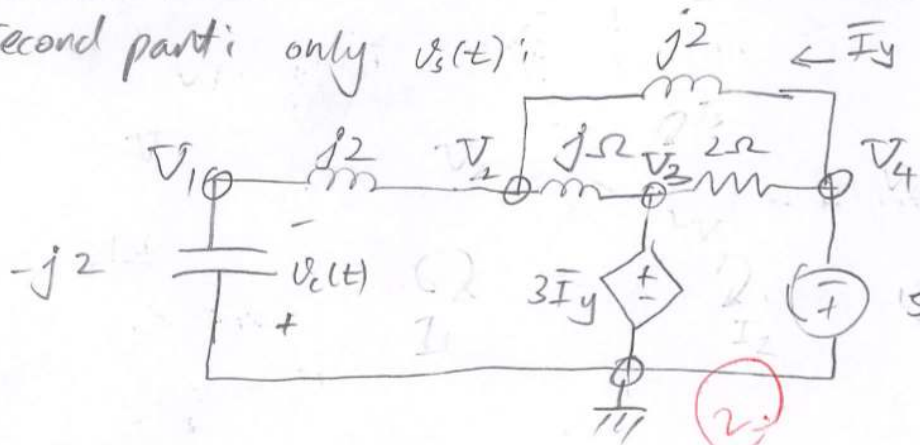 second part: only v_s(t):
j2
← I̅y
V1
j2
V2
jΩ
V3
2Ω
V4
-j2
-
v_c(t)
+
3I̅y
+
-
-
+
2